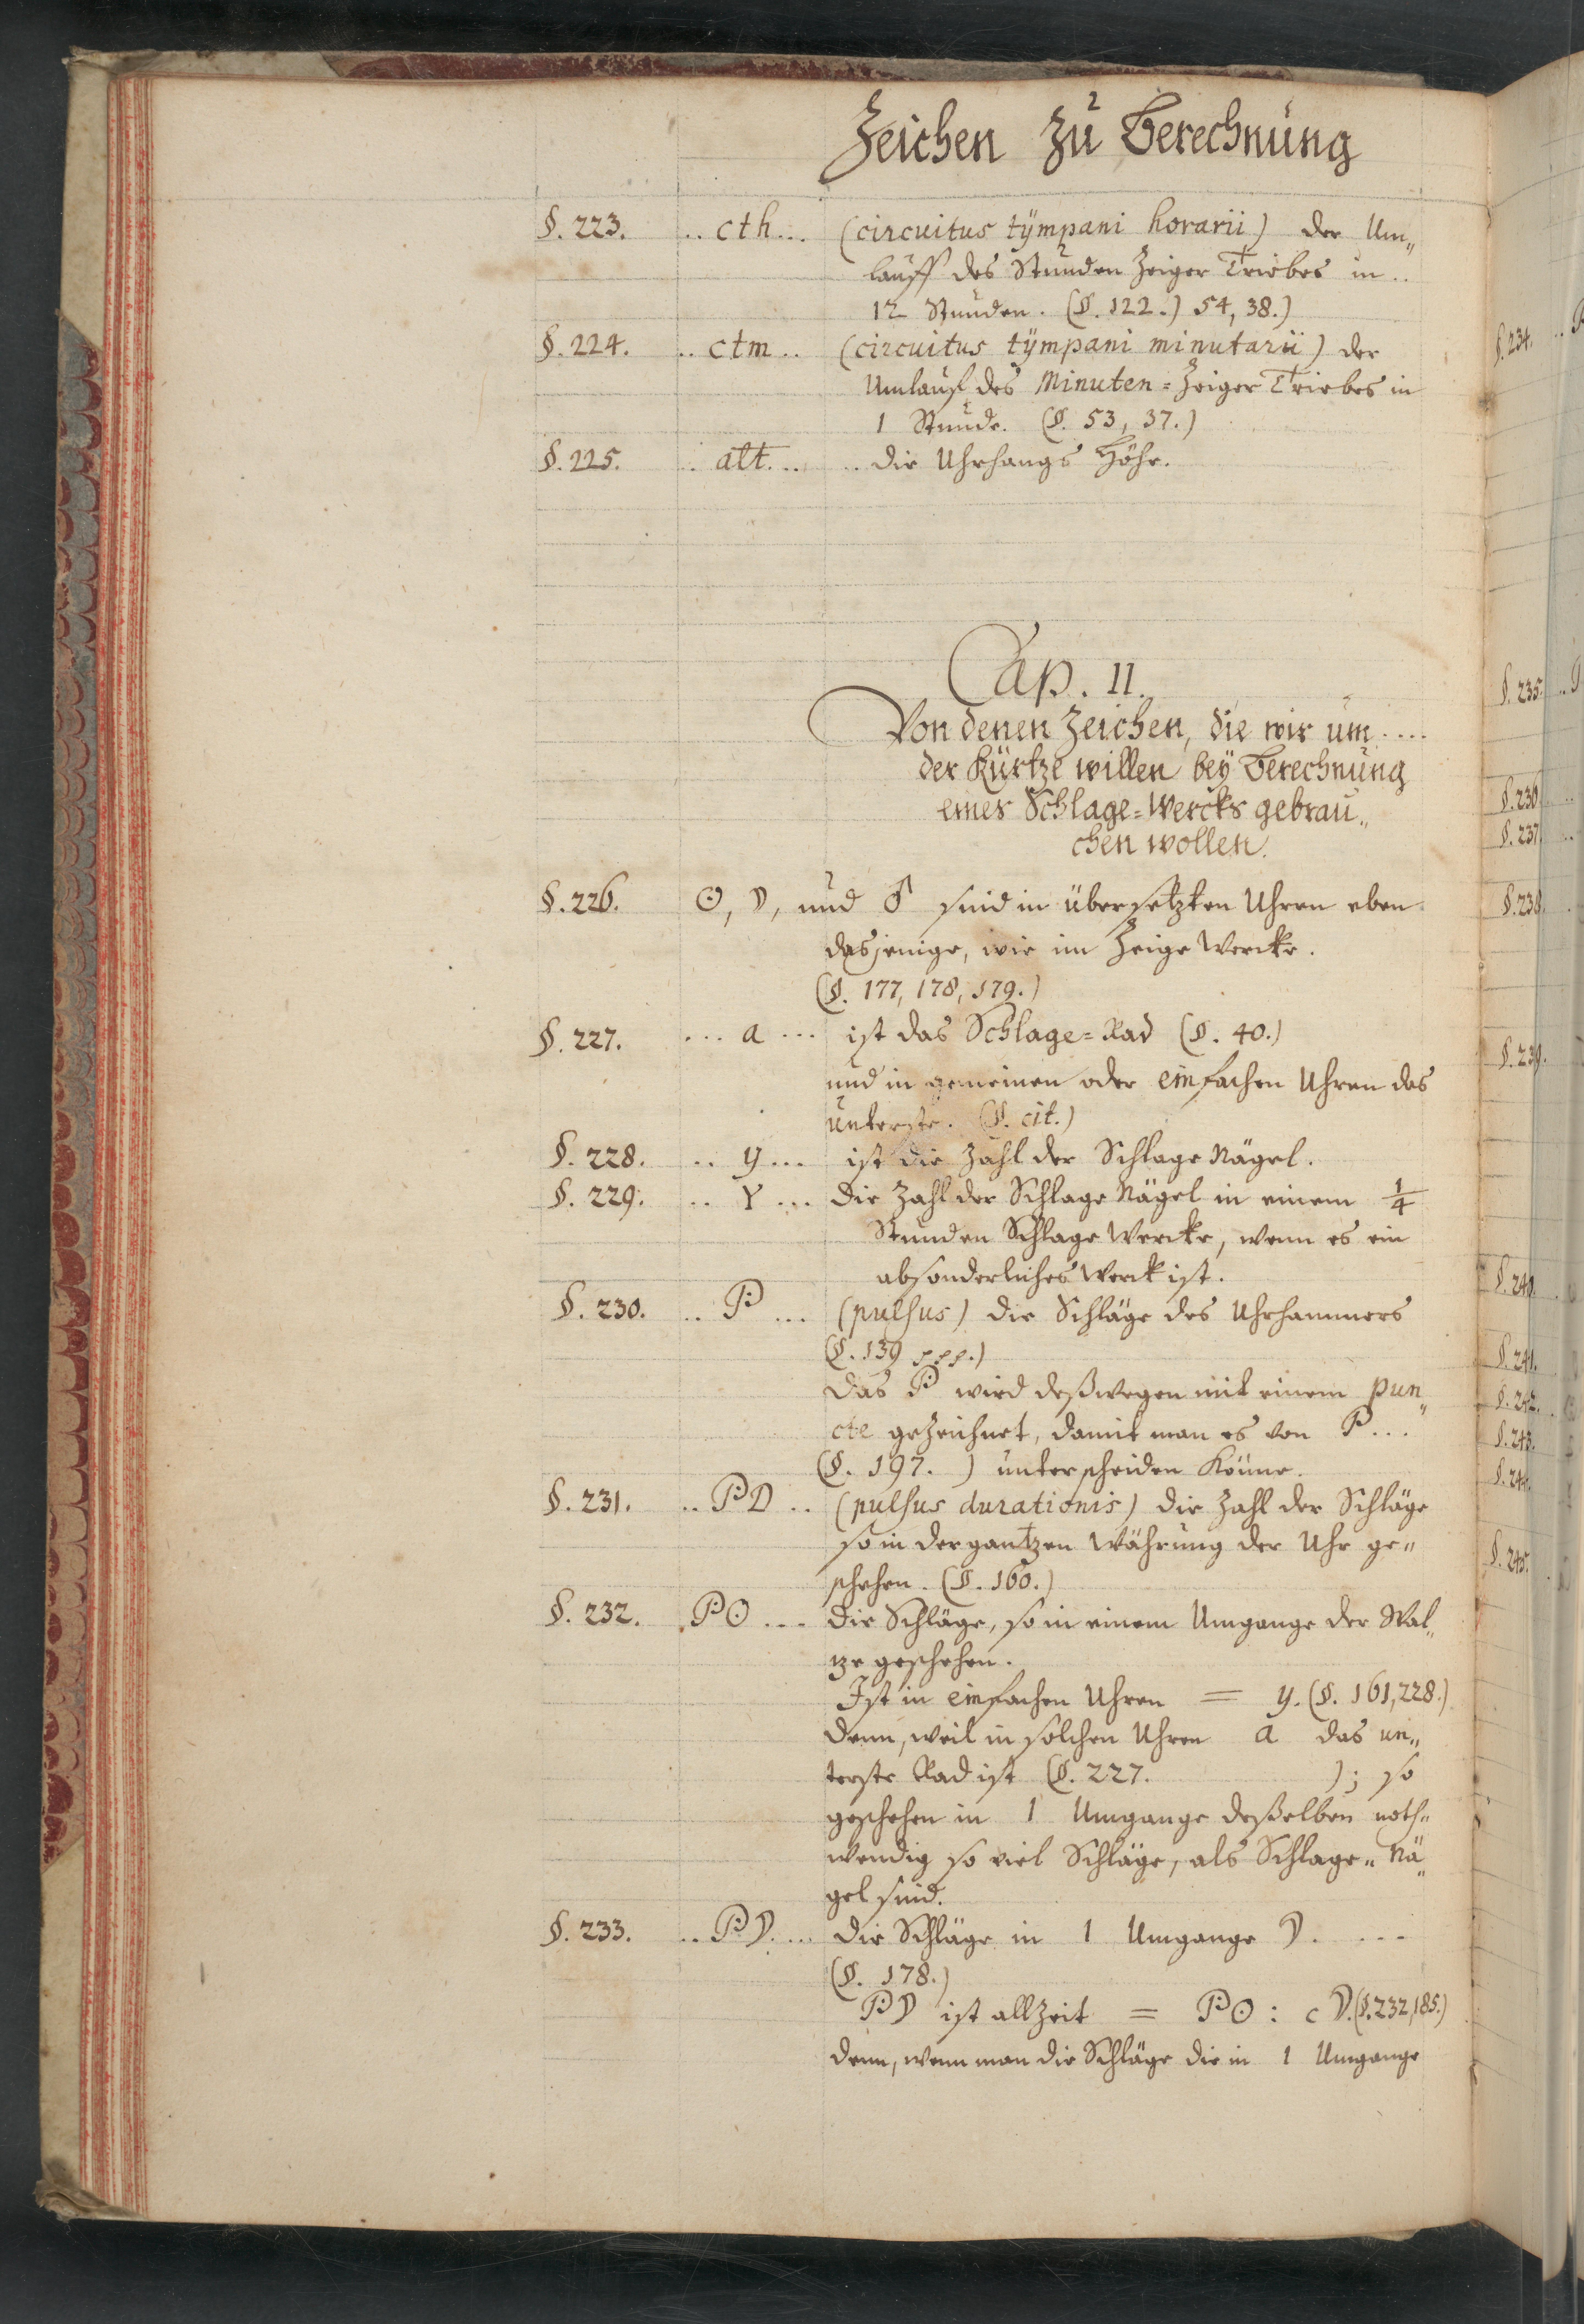 Zeichen Zu Berechnung
§. 223. .. cth ... (circuitus tÿmpani horarii) der Um„
lauff des Stunden Zeiger Triebes in ..
12 Stunden. (§. 122.) 54, 38.)
§. 224. .. ctm .. (circuitus tÿmpani minutarii) der
Umlauf des Minuten = Zeiger Triebes in
1 Stunde. (§. 53, 37.)
§. 225. .. alt. ... .. die Uhrhangs Höhe.
Cap. II.
Von denen Zeichen, die wir um ....
der Kürtze willen beÿ Berechnung
eines Schlage = Wercks gebrau„
chen wollen.
§. 226. ☉, ☽, und ♂ sind in übersetzten Uhren eben
dasjenige, wie im Zeige Wercke.
(§. 177, 178, 179.)
§. 227. ... a ... ist das Schlage = Rad (§. 40.)
und in gemeinen oder einfachen Uhren das
unterste. (§. cit.)
§. 228. .. y ... ist die Zahl der Schlage Nägel.
§. 229. .. Y ... die Zahl der Schlage Nägel in einem 1/4
Stunden Schlage Wercke, wenn es ein
absonderliches Werck ist.
§. 230. .. P ... (pulsus) die Schläge des Uhrhammers
(§. 139 sqq.)
Das P wird deßwegen mit einem pun„
cte gezeichnet, damit man es von P ...
(§. 197. ) unterscheiden Könne.
§. 231. .. PD .. (pulsus durationis) die Zahl der Schläge
so in der gantzen Währung der Uhr ge„
schehen. (§. 160.)
§. 232. P☉ ... die Schläge, so in einem Umgange der Wal„
tze geschehen.
Ist in einfachen Uhren = y. (§. 161, 228.)
denn, weil in solchen Uhren a das un„
terste Rad ist (§. 227. ); so
geschehen in 1 Umgange deßelben noth„
wendig so viel Schläge, als Schlage„ Nä„
gel sind.
§. 233. .. P☽. ... die Schläge in 1 Umgange ☽. ...
(§. 178.)
P☽ ist allzeit = P☉ : c ☽. (§. 232, 185.)
denn, wenn man die Schläge die in 1 Umgange
§. 234.
§. 235.
§. 236
§. 237
§. 238.
§. 239.
§. 240.
§. 241.
§. 242.
§. 243.
§. 244.
§. 245.